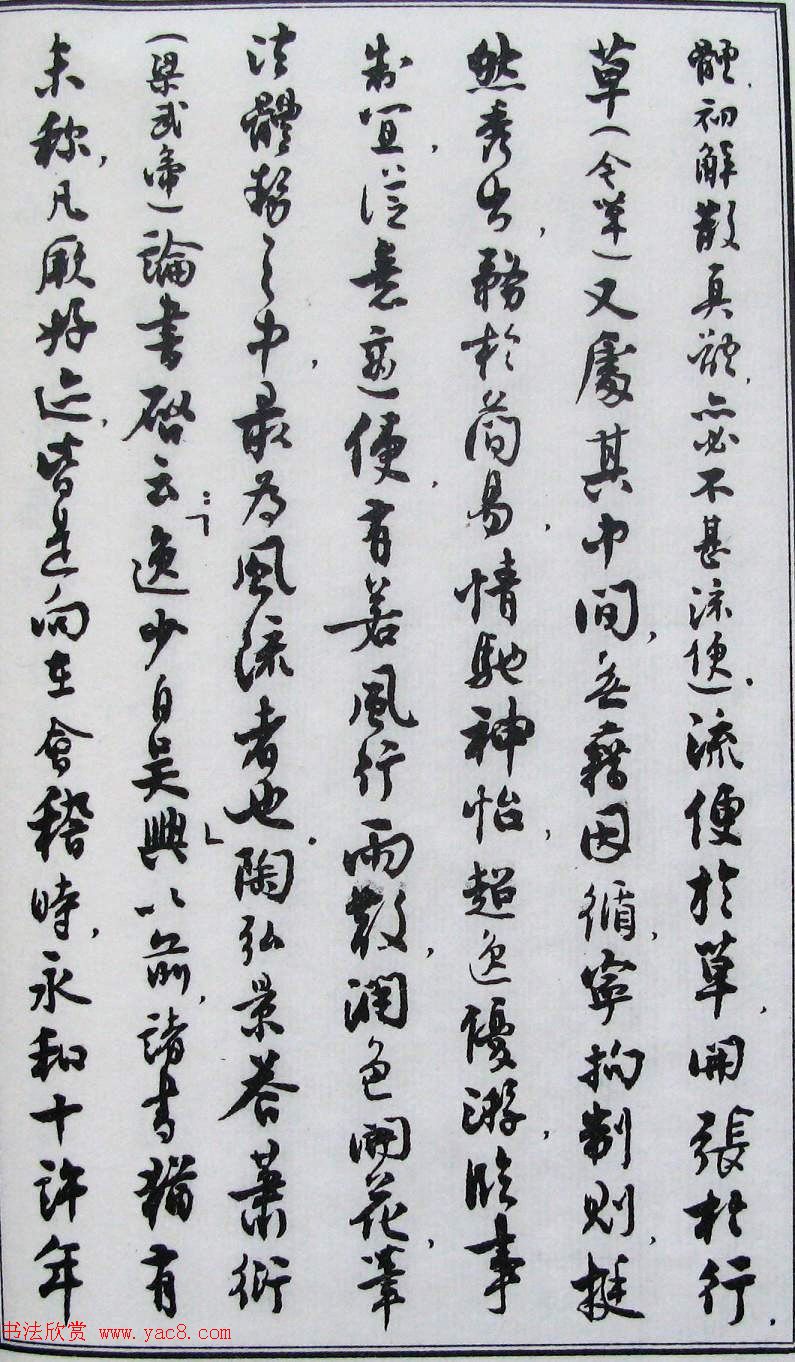 體，初解散真體，亦必不甚流便）流便於草，開張於行，
草（今草）又處其中間，無藉因循，寧拘制則，挺
然秀出，務於簡易，情馳神怡，超逸優游，臨事
制宜，從意適便，有若風行雨散，潤色開花，筆
法體勢之中，最為風流者也。陶弘景答蕭衍
（梁武帝）論書啓云：「逸少自吳興以前，諸書猶有
未稱，凡厥好迹，皆是向在會稽時，永和十許年
书法欣赏 www.yac8.com